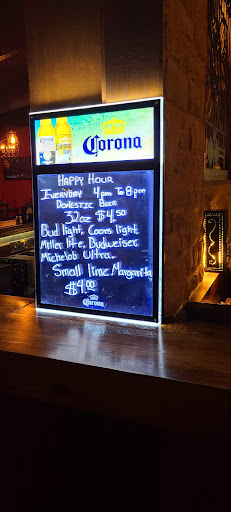 Corona
Happy Hour
Everyday 4pm To 8pm
Domestic Beer
32oz $4.50
Bud light, Coors light,
Miller lite, Budweiser,
Michelob Ultra.
Small lime Margarita
$4.00
Corona